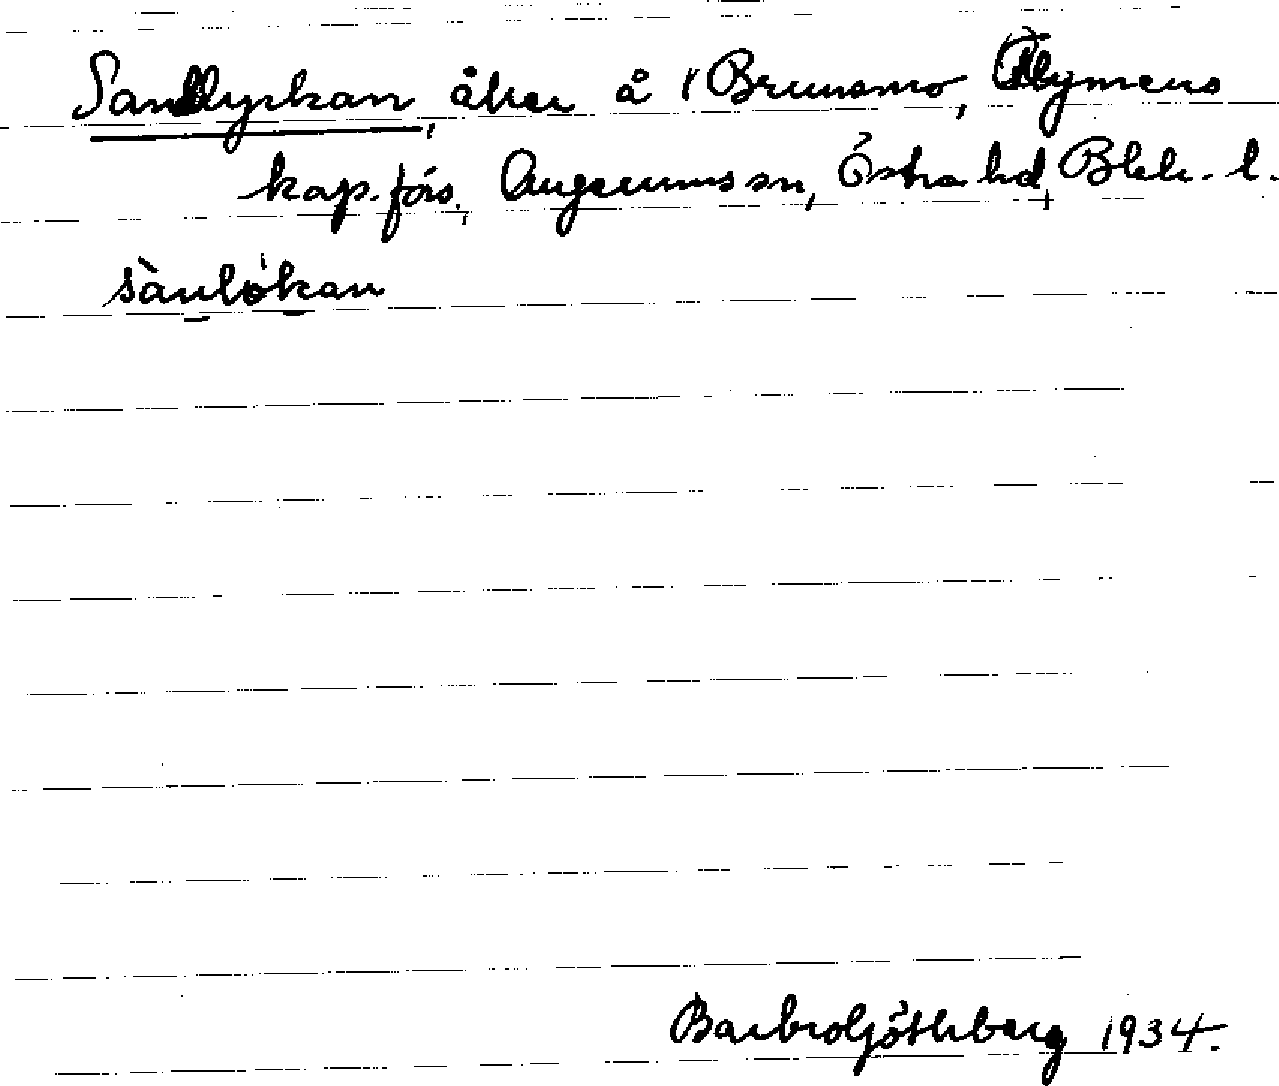 Sandlyckan, åker å 1 Brunamo, Flymens
kap. förs., Augerums sn, Östra hd, Blek. l.
sànlókan
Barbro Göthberg 1934.